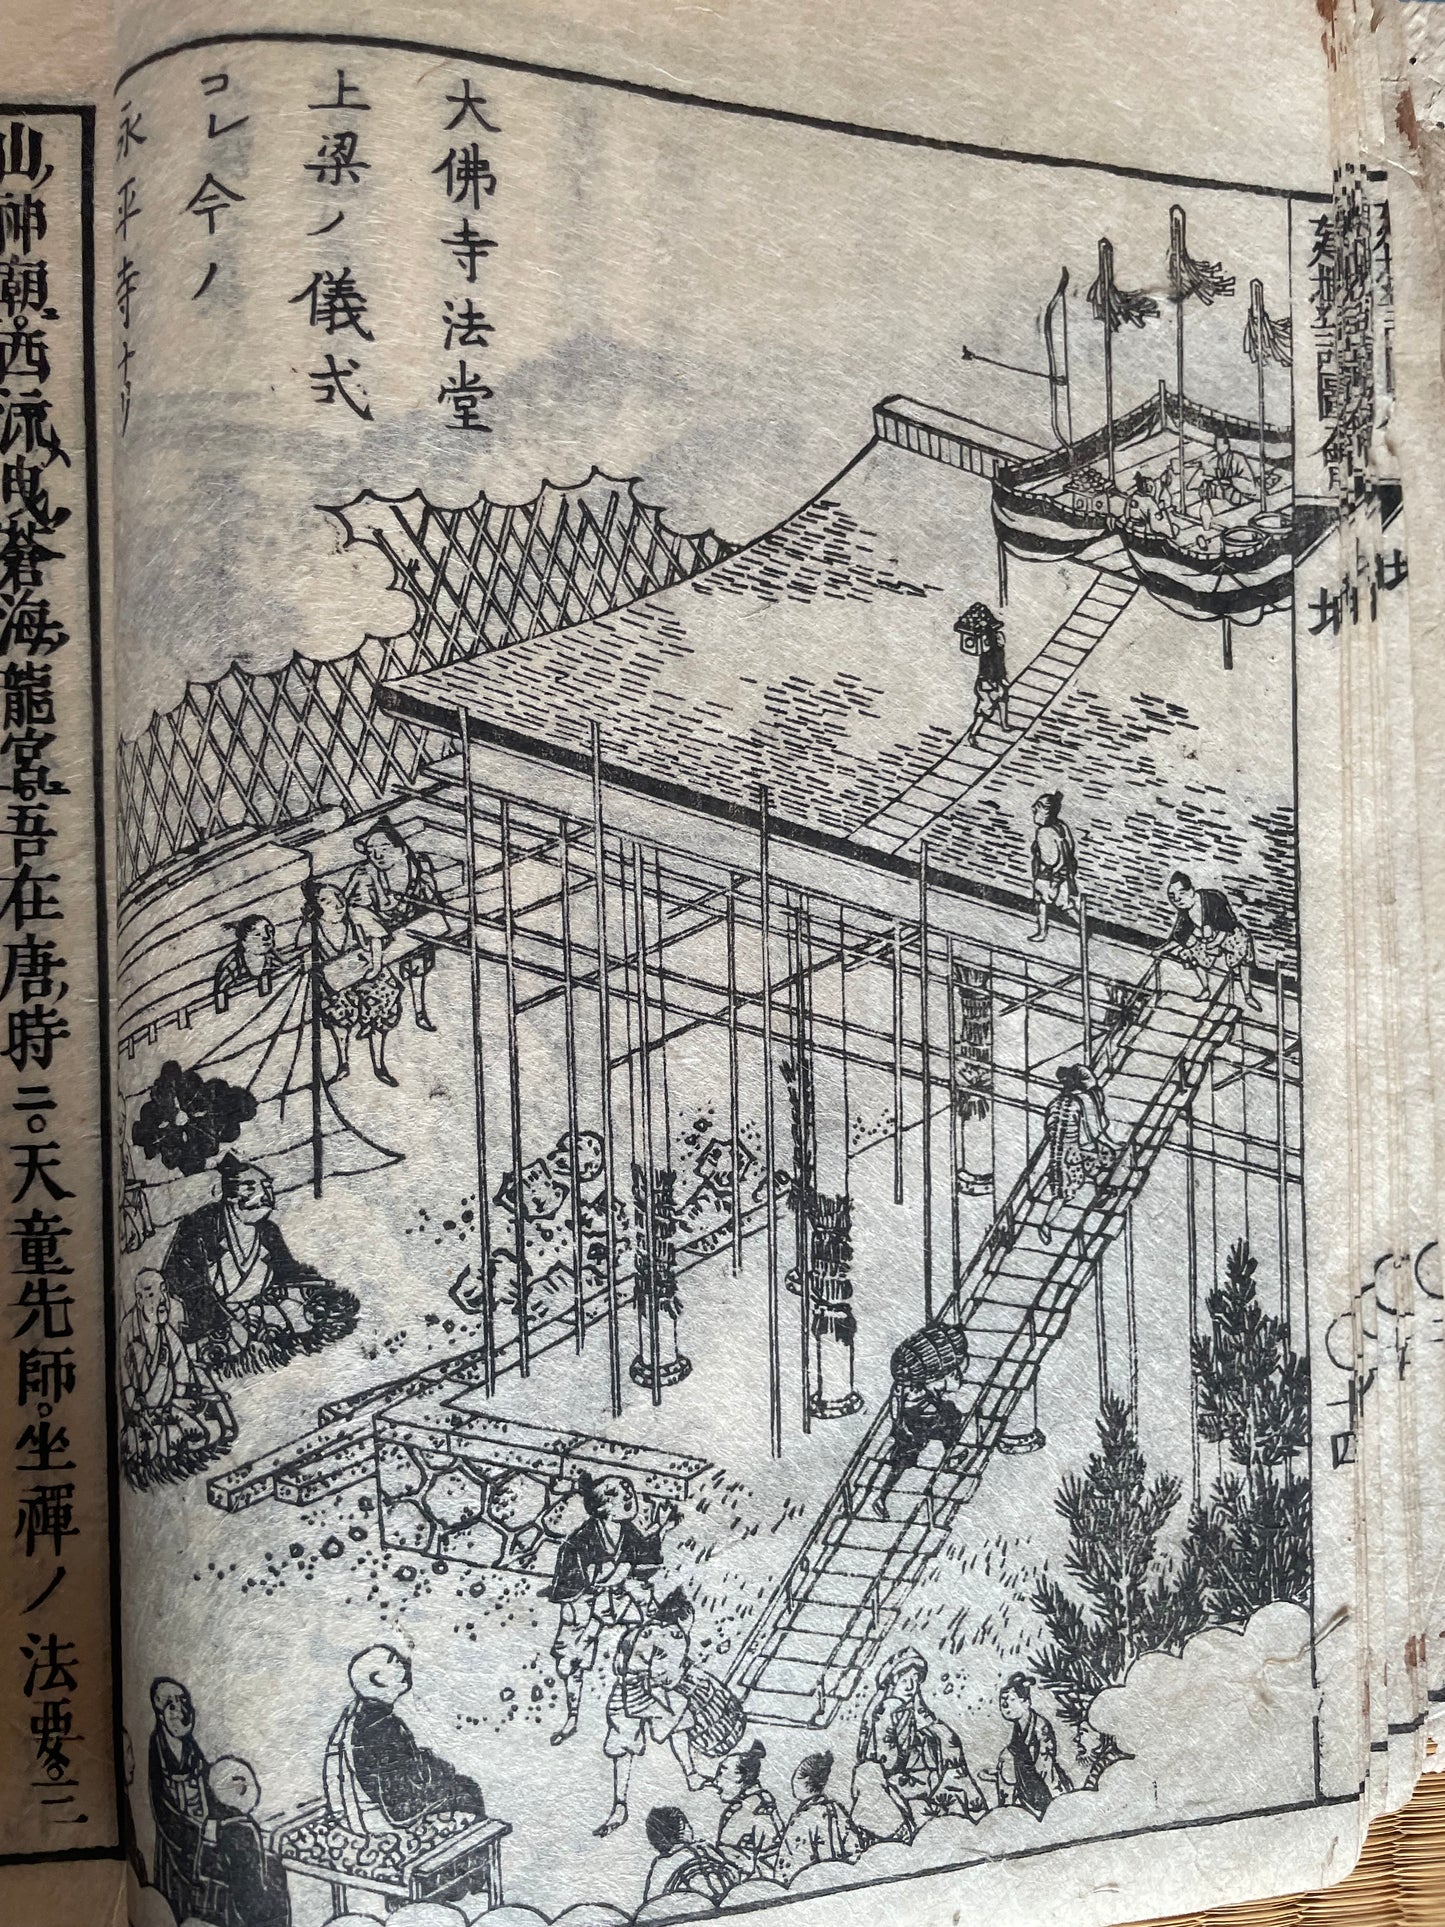 大佛寺法堂
上梁ノ儀式
コレ今ノ
永平寺ナリ
山神廟。西流曳蒼海龍宮。吾在唐時ニ。天童先師。坐禪ノ法要。ニ
十四